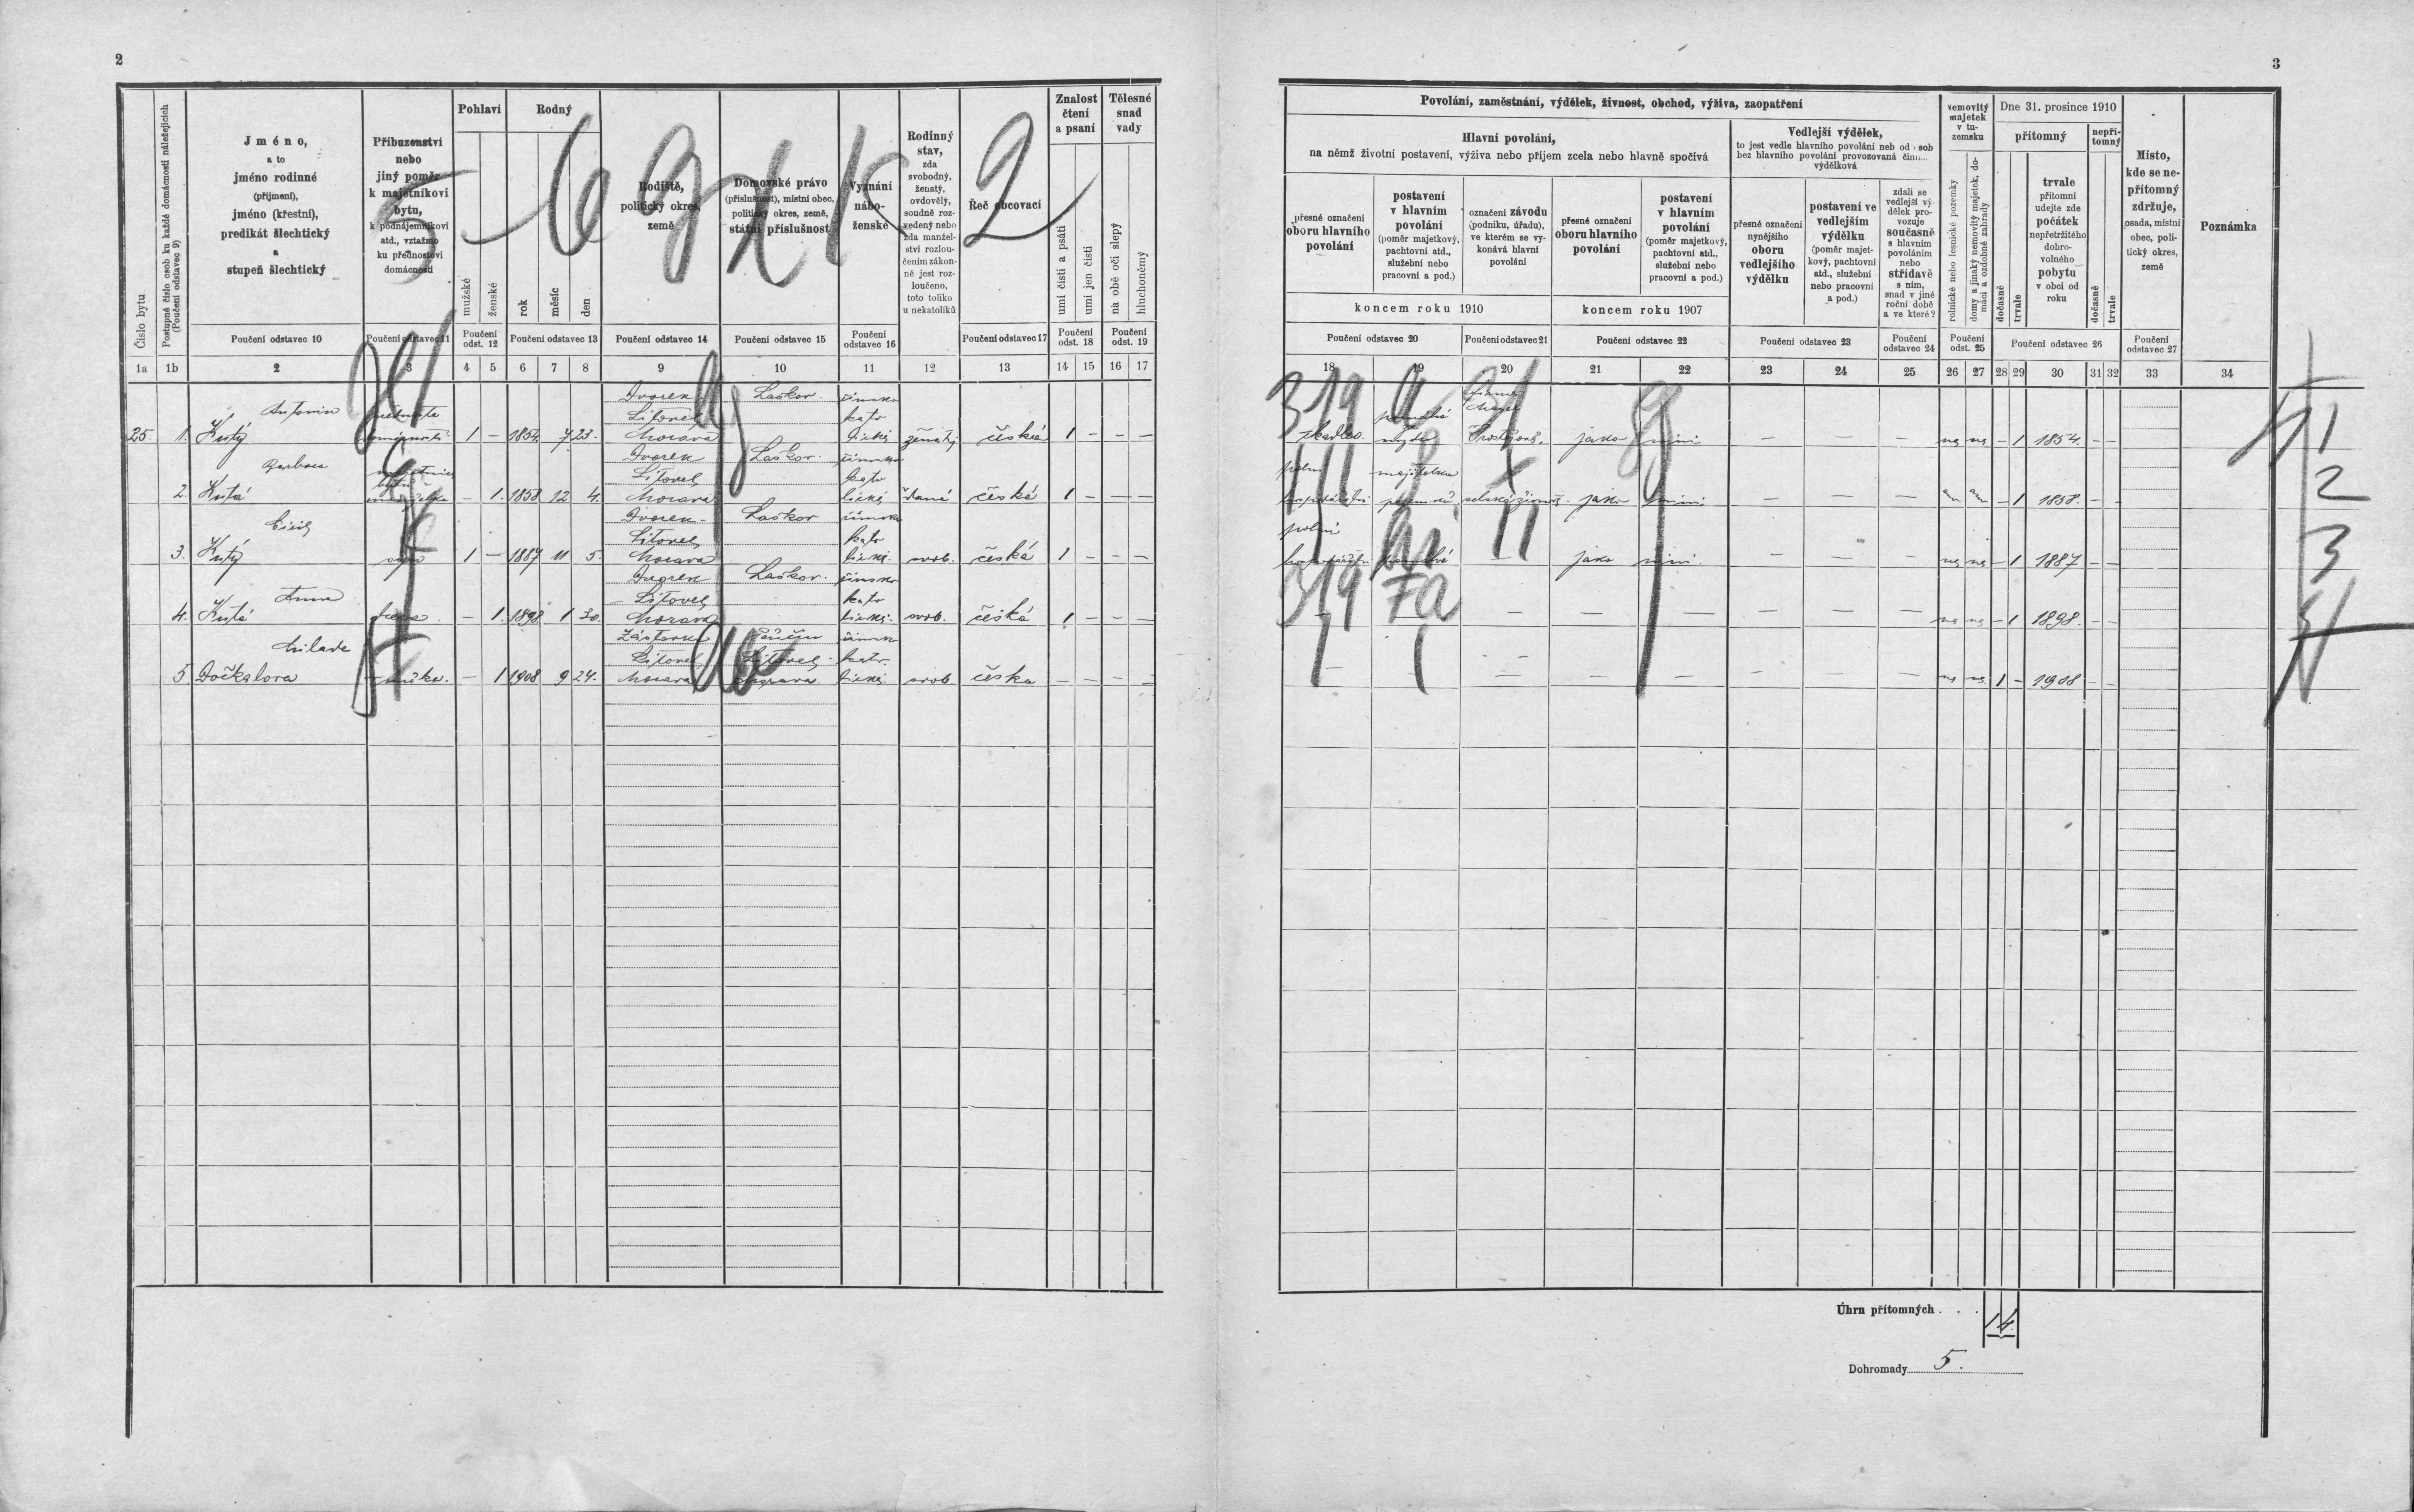 2
3
Číslo bytu
Postupné číslo osob ku každé domácnosti náležejících
(Poučení odstavec 9)
Jméno,
a to
jméno rodinné
(příjmení),
jméno (křestní),
predikát šlechtický
a
stupeň šlechtický
Příbuzenství
nebo
jiný poměr
k majetníkovi
bytu,
k podnájemníkovi
atd., vztažmo
ku přednostovi
domácnosti
Pohlaví
mužské
ženské
Rodný
rok
měsíc
den
Rodiště,
politický okres,
země
Domovské právo
(příslušnost), místní obec,
politický okres, země,
státní příslušnost
Vyznání
nábo-
ženské
Rodinný
stav,
zda
svobodný,
ženatý,
ovdovělý,
soudně roz-
vedený nebo
zda manžel-
ství rozlou-
čením zákon-
ně jest roz-
loučeno,
toto toliko
u nekatolíků
Řeč obcovací
Znalost
čtení
a psaní
umí čísti a psáti
umí jen čísti
Tělesné
snad
vady
na obě oči slepý
hluchoněmý
Poučení odstavec 10
Poučení odstavec 11
Poučení
odst. 12
Poučení odstavec 13
Poučení odstavec 14
Poučení odstavec 15
Poučení
odstavec 16
Poučení odstavec 17
Poučení
odst. 18
Poučení
odst. 19
1a 1b 2 3 4 5 6 7 8 9 10 11 12 13 14 15 16 17
5 6 9 2
Povolání, zaměstnání, výdělek, živnost, obchod, výživa, zaopatření
Hlavní povolání,
na němž životní postavení, výživa nebo příjem zcela nebo hlavně spočívá
přesné označení
oboru hlavního
povolání
postavení
v hlavním
povolání
(poměr majetkový,
pachtovní atd.,
služební nebo
pracovní a pod.)
označení závodu
(podniku, úřadu),
ve kterém se vy-
konává hlavní
povolání
přesné označení
oboru hlavního
povolání
postavení
v hlavním
povolání
(poměr majetkový,
pachtovní atd.,
služební nebo
pracovní a pod.)
koncem roku 1910
koncem roku 1907
Vedlejší výdělek,
to jest vedle hlavního povolání neb od osob
bez hlavního povolání provozovaná činn...
výdělková
přesné označení
nynějšího
oboru
vedlejšího
výdělku
postavení ve
vedlejším
výdělku
(poměr majet-
kový, pachtovní
atd., služební
nebo pracovní
a pod.)
zdali se
vedlejší vý-
dělek pro-
vozuje
současně
s hlavním
povoláním
nebo
střídavě
s ním,
snad v jiné
roční době
a ve které?
nemovitý
majetek
v tu-
zemsku
rolnické nebo lesnické pozemky
domy a jinaký nemovitý majetek, do-
mácí a ozdobné zahrady
Dne 31. prosince 1910
přítomný
nepří-
tomný
dočasně
trvale
trvale
přítomní
udejte zde
počátek
nepřetržitého
dobro-
volného
pobytu
v obci od
roku
dočasně
trvale
Místo,
kde se ne-
přítomný
zdržuje,
osada, místní
obec, poli-
tický okres,
země
Poznámka
Poučení odstavec 20
Poučení odstavec 21
Poučení odstavec 22
Poučení odstavec 23
Poučení
odstavec 24
Poučení
odst. 25
Poučení odstavec 26
Poučení
odstavec 27
18 19 20 21 22 23 24 25 26 27 28 29 30 31 32 33 34
Antonín Dvorek Laškov římsko
Litovel kato
25. 1. Kutý 1 – 1854. 7 23. Morava lické ženatý česká 1 – – –
jako nyní – – – ne ne – 1 1854. – –
Barbora Dvorek Laškov. římsko
Litovel kato
2. Kutá – 1. 1858 12 4. Morava lické vdaná česká 1 – – –
polní majitelka
hospodářství jako nyní – – – – 1 1858. – –
Dvorek Laškov římsko
Litovel kato
3. Kutý syn 1 – 1887 11 5. Morava lické. svob. česká 1 – – –
polní
jako nyní. – – – ne ne – 1 1887 – –
Anna Dvorek Laškov. římsko
Litovel kato
4. Kutá dcera – 1. 1898 1 30. Morava lické. svob. česká 1 – – –
– – – – – – ne ne – 1 1898. – –
Milada římsko
Litovel Litovel kato.
5. Dočkalova – 1 1908 9 24. Morava Morava lické. svob česka – – – –
– – – – – – – ne ne. 1 – 1908 – –
319
319 7a
1
2
3
Úhrn přítomných . . . 1 4.
Dohromady 5.